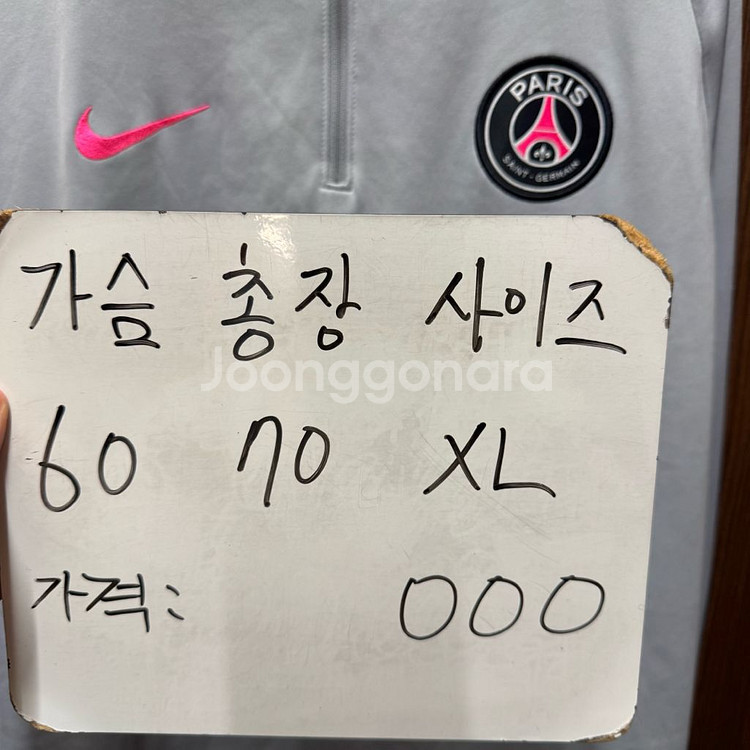 PARIS
SAINT-GERMAIN
가슴 총장 사이즈
Joonggonara
60 70 XL
가격: 000